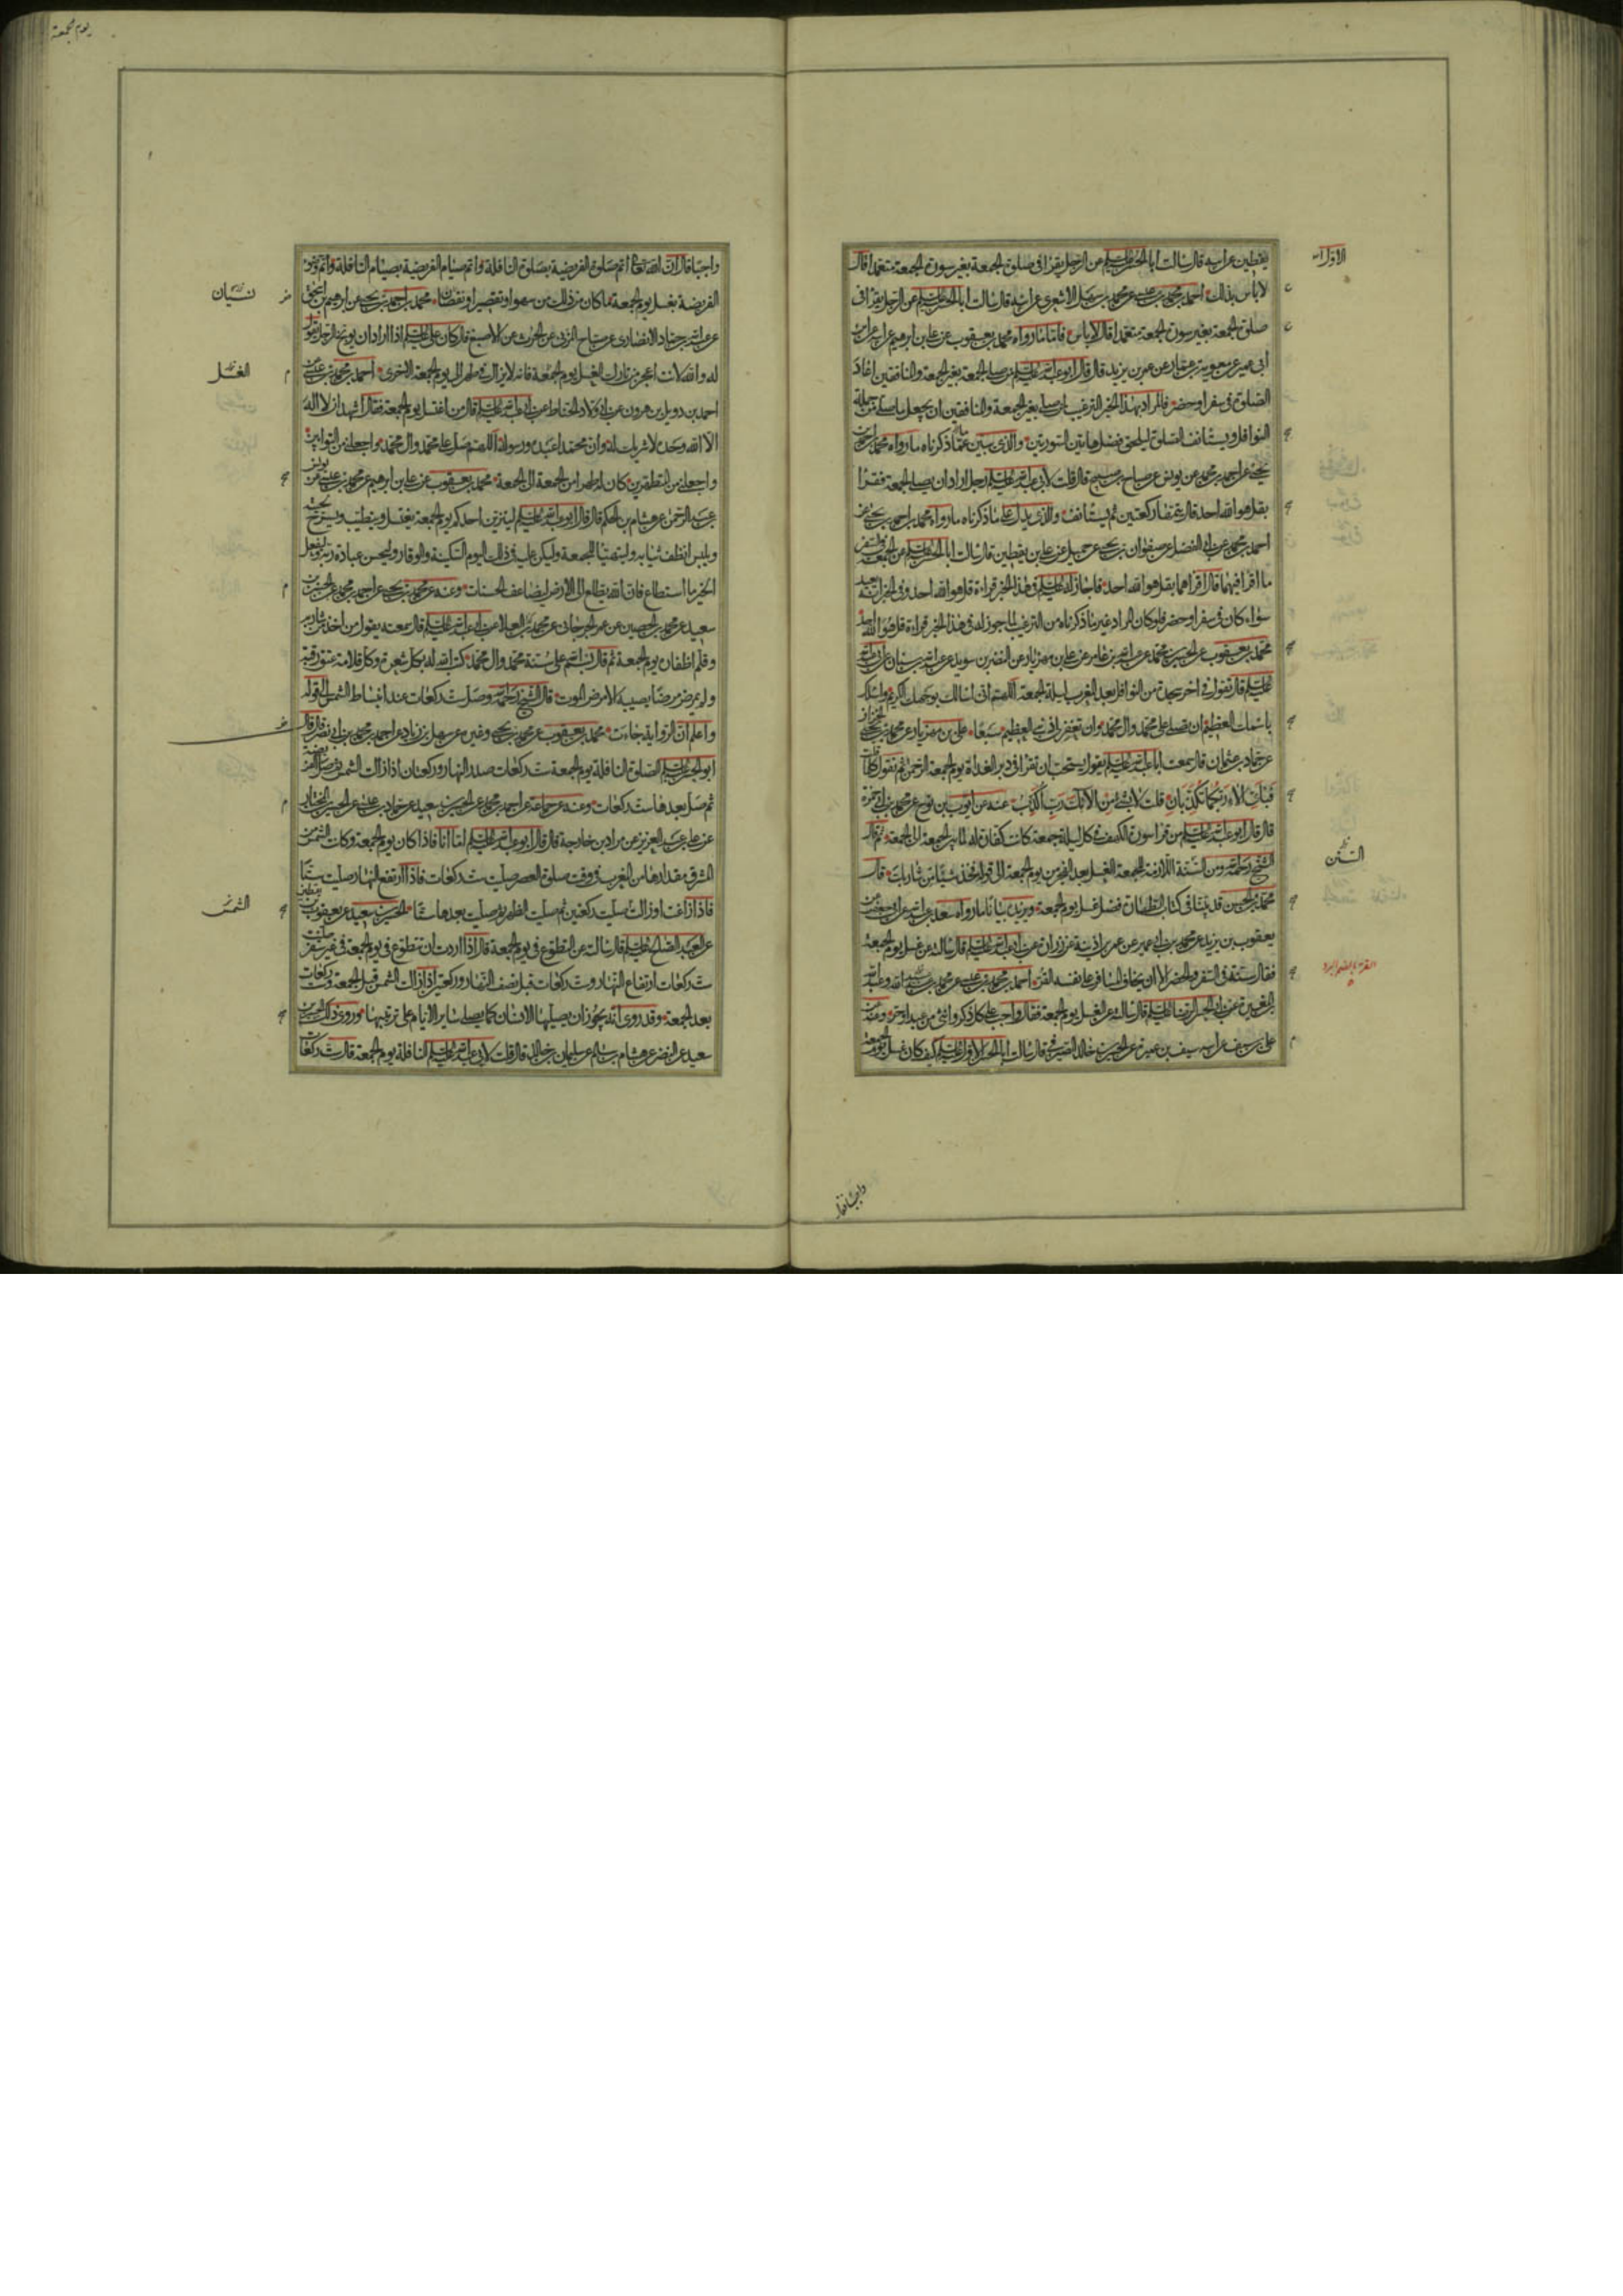 يقطين عن ابيه قال سالت ابا الحسن عليه السلم عن الرجل يقرا في صلوة الجمعة بغير سورة الجمعة متعمدا قال
لا باس بذلك احمد بن محمد بن عيسى عن محمد بن سهل الاشعري عن ابيه قال سالت ابا الحسن عليه السلم عن الرجل يقرا في
صلوة الجمعة بغير سورة الجمعة متعمدا قال لا باس فاما ما رواه محمد بن يعقوب عن علي بن ابرهيم عن ابيه عن ابن
ابي عمير عن معوية بن عمار عن عمر بن يزيد قال قال ابو عبد الله عليه السلم من صلى الجمعة بغير الجمعة والمنافقين اعاد
الصلوة في سفر او حضر فالمراد بهذا الخبر الترغيب لمن صلى بغير الجمعة والمنافقين ان يجعل ما صلى من جملة
النوافل ويستانف الصلوة ليلحق فضل هاتين السورتين والذي يبين عما ذكرناه ما رواه محمد بن احمد بن
يحيى عن احمد بن محمد عن يونس عن صباح بن صبيح قال قلت لابي عبد الله عليه السلم رجل اراد ان يصلي الجمعة فقرا
بقل هو الله احد قال يتمها ركعتين ثم يستانف والذي يدل على ما ذكرناه ما رواه محمد بن احمد بن يحيى عن
احمد بن محمد عن ابي الفضل عن صفوان بن يحيى عن جميل عن علي بن يقطين قال سالت ابا الحسن عليه السلم عن الجمعة في السفر
ما اقرا فيهما قال اقراهما بقل هو الله احد فاجاز له عليه السلم في هذا الخبر قراءة قل هو الله احد وفي الخبر انه يعيد
سواء كان في سفر او حضر فلو كان المراد غير ما ذكرناه من الترغيب لما جوز له في هذا الخبر قراءة قل هو الله احد
محمد بن يعقوب عن الحسين بن محمد عن عبد الله بن عامر عن علي بن مهزيار عن النضر بن سويد عن عبد الله بن سنان عن ابي عبد الله
عليه السلم قال تقول في اخر سجدة من النوافل بعد المغرب ليلة الجمعة اللهم اني اسالك بوجهك الكريم واسمك
باسمك العظيم ان تصلي على محمد وال محمد وان تغفر لي ذنبي العظيم سبعا علي بن مهزيار عن محمد بن يحيى الخزاز
عن حماد بن عثمان قال سمعت ابا عبد الله عليه السلم يقول يستحب ان تقرا في دبر الغداة يوم الجمعة الرحمن ثم تقول كلما قلت
فباي الاء ربكما تكذبان قلت لا بشي من الائك رب اكذب عنه عن ايوب بن نوح عن محمد بن ابي حمزة
قال قال ابو عبد الله عليه السلم من قرا سورة الكهف في كل ليلة جمعة كانت كفارة له لما بين الجمعة الى الجمعة ثم قال
الشيخ رحمه الله ومن السنة اللازمة للجمعة الغسل بعد الفجر من يوم الجمعة الى قوله فخذ شيئا من شاربك قال
محمد بن الحسن قد بينا في كتاب الطهارة فضل غسل يوم الجمعة ويزيد بيانا ما رواه سعد بن عبد الله عن
يعقوب بن يزيد عن محمد بن ابي عمير عن عمر بن اذينة عن زرارة عن ابي عبد الله عليه السلم قال سالته عن غسل يوم الجمعة
فقال سنة في السفر والحضر الا ان يخاف المسافر على نفسه القر احمد بن محمد بن عيسى عن محمد بن عبد الله وعبد الله
بن المغيرة عن ابي الحسن الرضا عليه السلم قال سالته عن الغسل يوم الجمعة فقال واجب على كل ذكر وانثى من عبد او حر وعنه عن
علي بن سيف عن ابيه سيف بن عميرة عن الحسين بن خالد الصيرفي قال سالت ابا الحسن الاول عليه السلم كيف كان غسل يوم الجمعة
السنن
القر بالضم البرد
يوم الجمعة
واجبا قال ان الله تعالى اتم صلوة الفريضة بصلوة النافلة واتم صيام الفريضة بصيام النافلة واتم وضوء
الفريضة بغسل يوم الجمعة ما كان من ذلك من سهو او تقصير او نقصان محمد بن احمد بن يحيى عن ابرهيم بن اسحق
عن عبد الله بن حماد الانصاري عن صباح المزني عن الحرث عن الاصبغ قال كان علي عليه السلم اذا اراد ان يوبخ الرجل يقول
له والله لانت اعجز من تارك الغسل يوم الجمعة فانه لا يزال في طهر الى يوم الجمعة الاخرى احمد بن محمد بن عيسى عن
احمد بن دويل بن هرون عن ابي ولاد الحناط عن ابي عبد الله عليه السلم قال من اغتسل يوم الجمعة فقال اشهد ان لا اله
الا الله وحده لا شريك له وان محمدا عبده ورسوله اللهم صل على محمد وال محمد واجعلني من التوابين
واجعلني من المتطهرين كان له طهرا من الجمعة الى الجمعة محمد بن يعقوب عن علي بن ابرهيم عن محمد بن عيسى عن يونس بن
عبد الرحمن عن هشام بن الحكم قال قال ابو عبد الله عليه السلم ليتزين احدكم يوم الجمعة يغتسل ويتطيب ويسرح لحيته
ويلبس انظف ثيابه وليتهيا للجمعة وليكن عليه في ذلك اليوم السكينة والوقار وليحسن عبادة ربه وليفعل
الخير ما استطاع فان الله يطلع الى الارض ليضاعف الحسنات وعنه عن محمد بن يحيى عن احمد بن محمد عن الحسين بن
سعيد عن محمد بن الحصين عن عمر الجرجاني عن محمد بن العلا عن ابي عبد الله عليه السلم قال سمعته يقول من اخذ من شاربه
وقلم اظفاره يوم الجمعة ثم قال بسم الله على سنة محمد وال محمد كتب الله له بكل شعرة وكل قلامة عتق رقبة
ولم يمرض مرضا يصيبه الا مرض الموت قال الشيخ رحمه الله وصل ست ركعات عند انبساط الشمس الى قوله
واعلم ان الرواية جاءت محمد بن يعقوب عن محمد بن يحيى وغيره عن سهل بن زياد عن احمد بن محمد بن ابي نصر قال قال
ابو الحسن عليه السلم الصلوة النافلة يوم الجمعة ست ركعات صدر النهار وركعتان اذا زالت الشمس ثم صل الفريضة
ثم صل بعدها ست ركعات وعنه عن جماعة عن احمد بن محمد عن الحسين بن سعيد عن حماد بن عيسى عن الحسين بن المختار
عن علي بن عبد العزيز عن مراد بن خارجة قال قال ابو عبد الله عليه السلم اما انا فاذا كان يوم الجمعة وكانت الشمس من
المشرق مقدارها من المغرب في وقت صلوة العصر صليت ست ركعات فاذا ارتفع النهار صليت ستا
فاذا زاغت او زالت صليت ركعتين ثم صليت الظهر ثم صليت بعدها ستا الحسين بن سعيد عن يعقوب بن يقطين
عن العبد الصالح عليه السلم قال سالته عن التطوع في يوم الجمعة قال اذا اردت ان تتطوع في يوم الجمعة في غير سفر صليت
ست ركعات ارتفاع النهار وست ركعات قبل نصف النهار وركعتين اذا زالت الشمس قبل الجمعة وست ركعات
بعد الجمعة وقد روي انه يجوز ان يصليها الانسان كما يصلي ساير الايام على ترتيبها وروى ذلك الحسين بن
سعيد عن النضر عن هشام بن سالم عن سليمان بن خالد قال قلت لابي عبد الله عليه السلم النافلة يوم الجمعة قال ست ركعات
نسيان
الغسل
الشمس